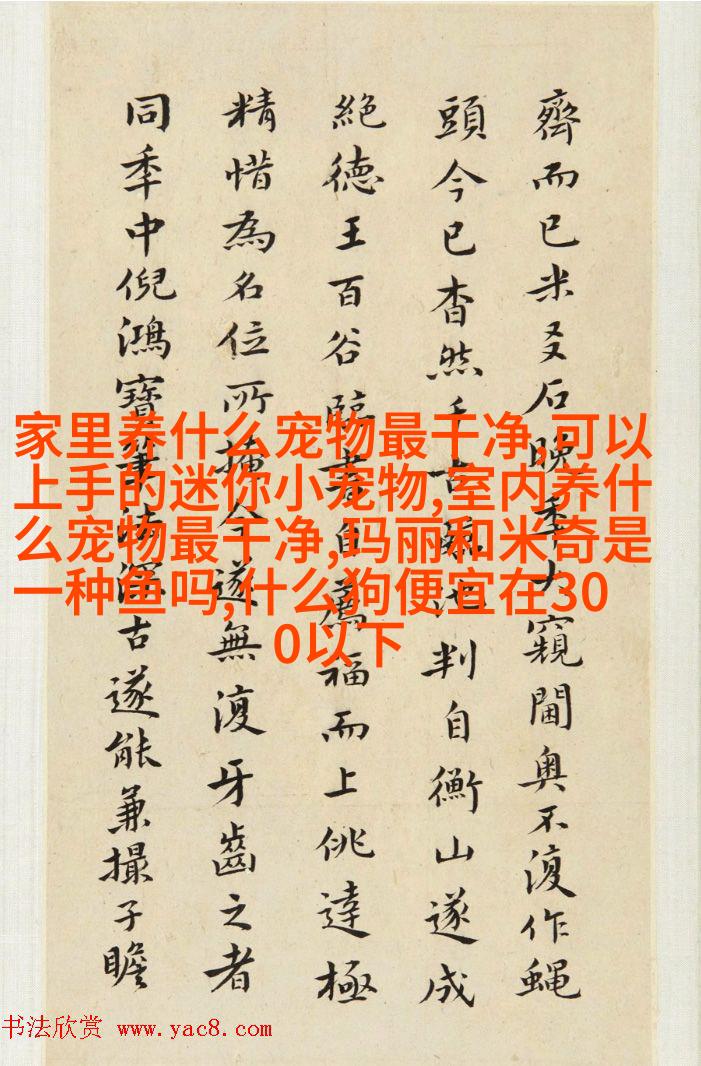 齊而已米友石晚季大窺閫奥不復作蝇
頭今已杳然千古池判自衡山遂成
絶德王百谷臨書自薦福而上佻達極
精惜為名位所掩今遂無復牙齒之者
同季中倪鴻寶筆法深古遂能兼撮子瞻
家里养什么宠物最干净,可以
上手的迷你小宠物,室内养什
么宠物最干净,玛丽和米奇是
一种鱼吗,什么狗便宜在30
0以下
书法欣赏 www.yac8.com